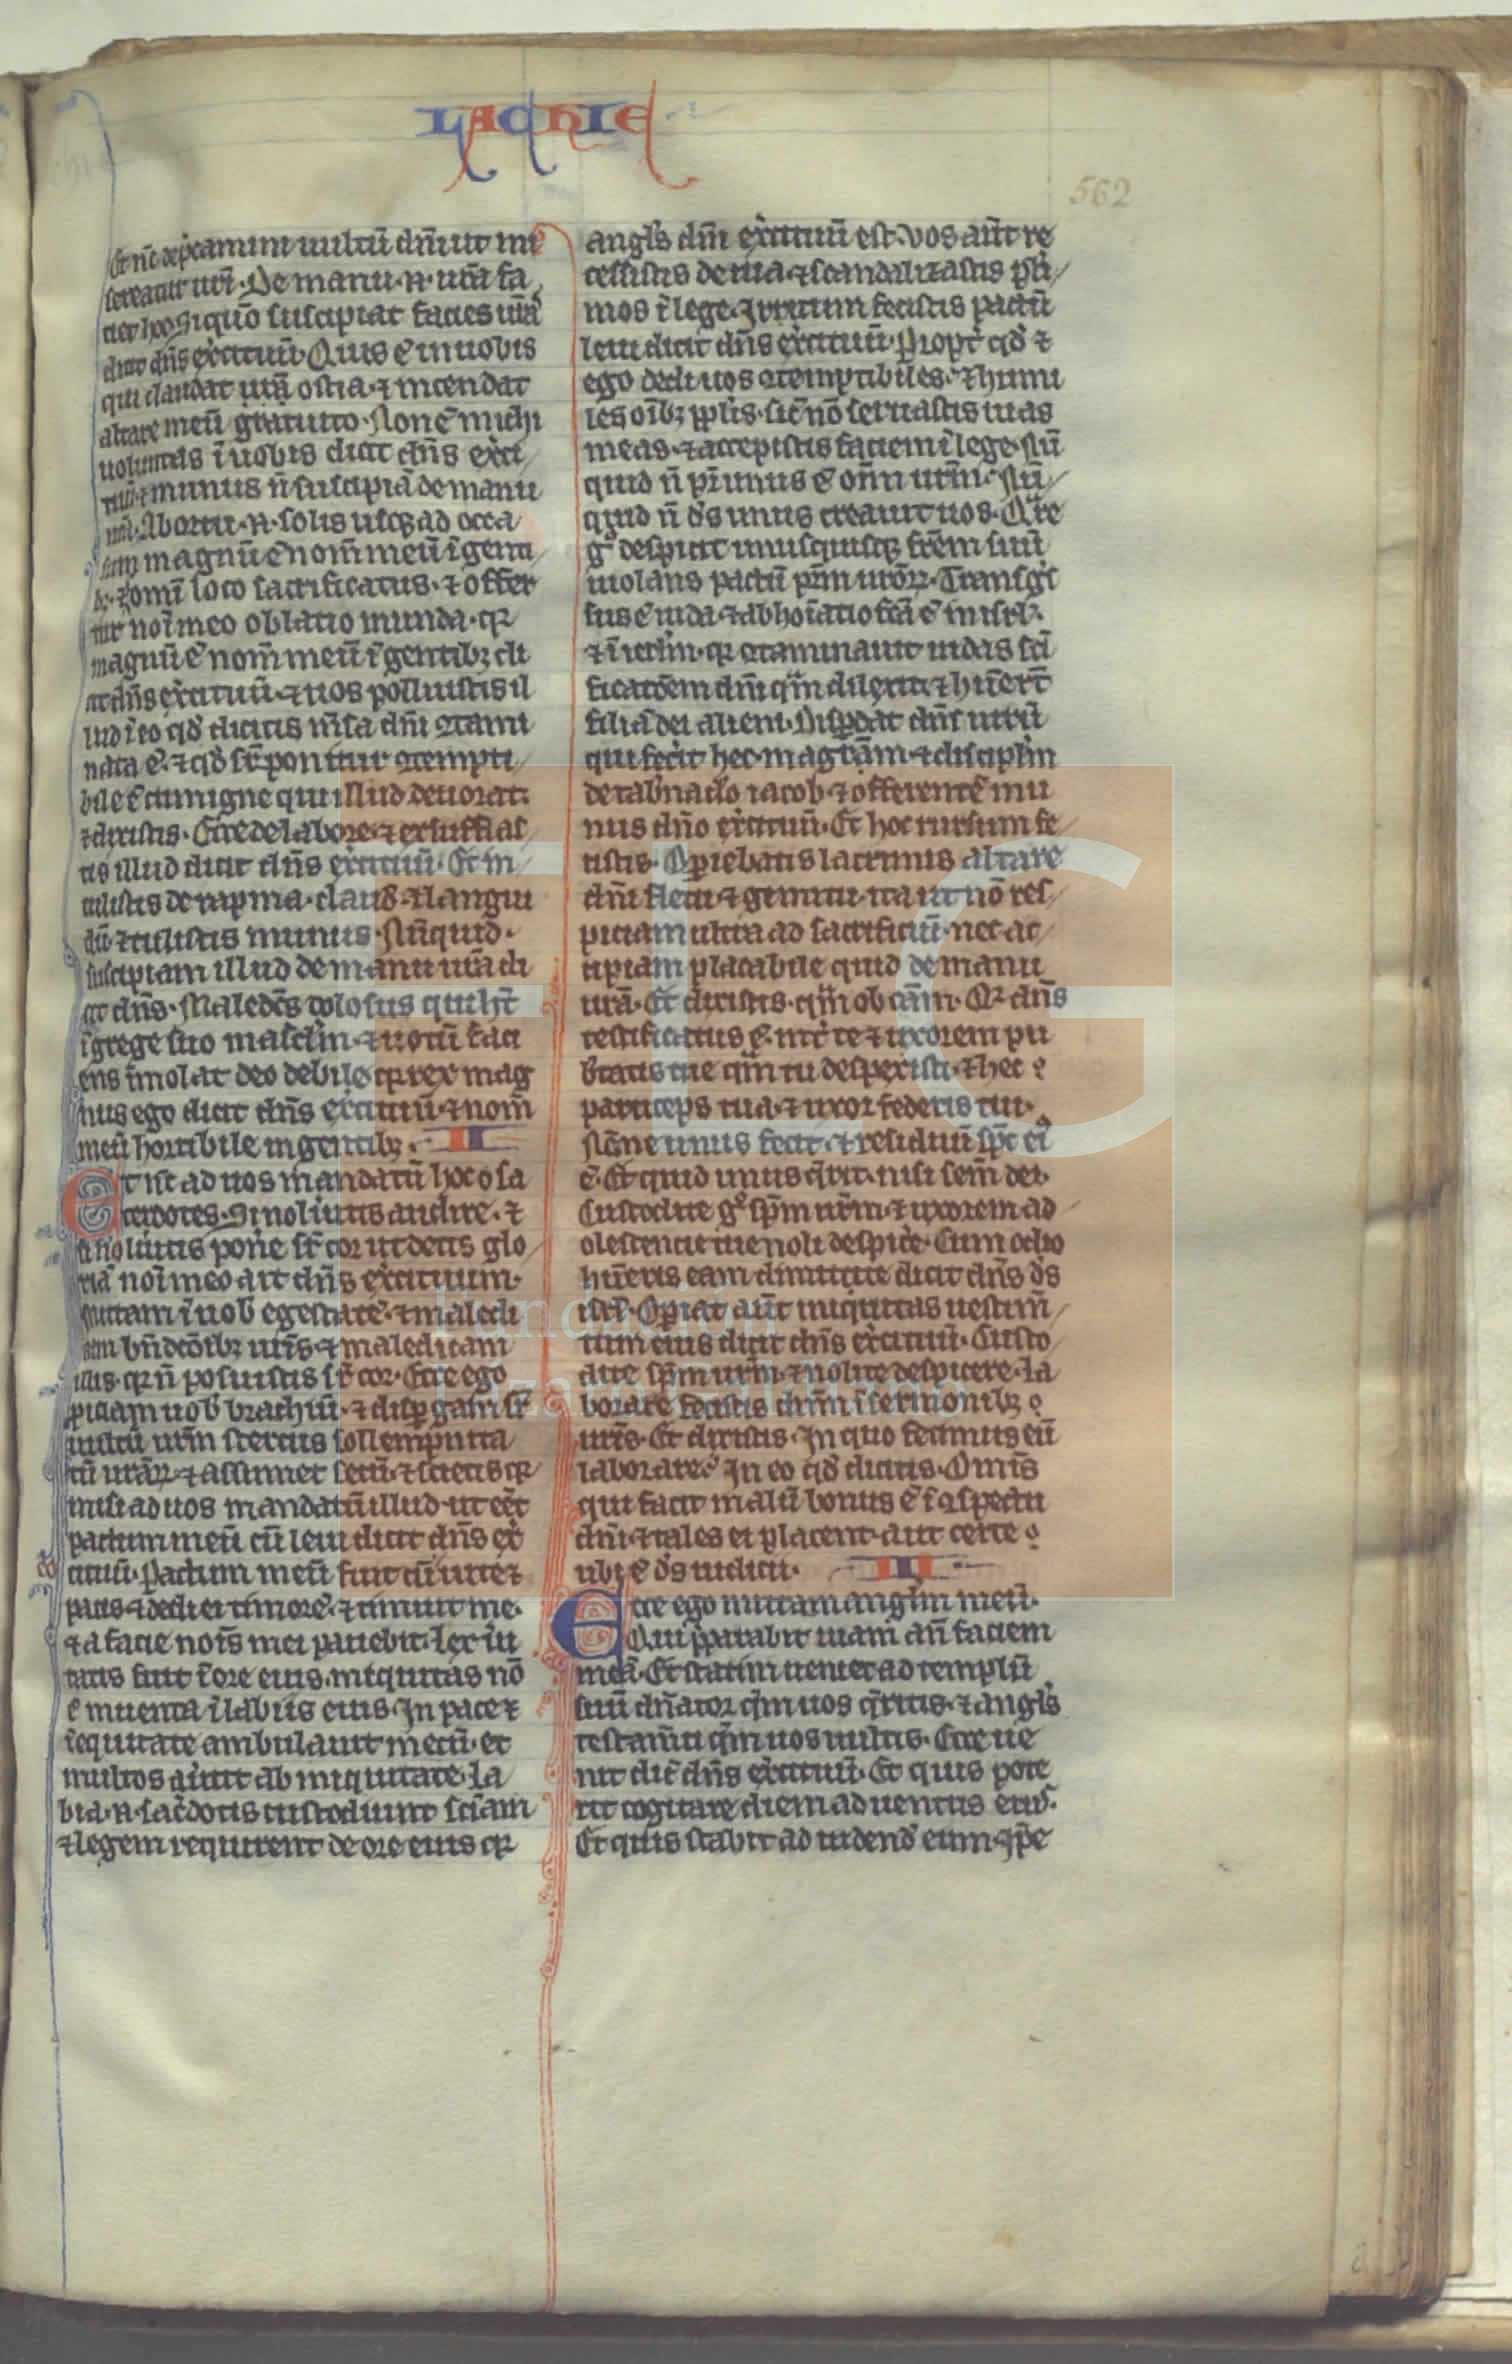 LACHIE
562
Et nc̄ dep̄camini uultū dn̄i ut mi
sereatur ur̄i. De manu .n. ur̄a fa
ctū ē hoc. Si quō suscipiat facies ur̄as
dicit dn̄s exercituū. Quis ē in uobis
qui claudat ⁊ ostia. ⁊ incendat
altare meū gratuito. Non ē michi
uoluntas ī uobis dicit dn̄s exerci
tuū. ⁊ munus n̄ suscipiā de manu
ur̄a. Ab ortu .n. solis usq; ad occa
sum magnū ē nom̄ meū ī genti
b; ⁊ ī omī loco sacrificatur. ⁊ offer
tur noī meo oblatio munda. qꝛ
magnū ē nom̄ meū ī gentibꝫ di
cit dn̄s exercituū. ⁊ uos polluistis il
lud ī eo qd̓ dicitis m̄sa dn̄i ꝯtami
nata ē. ⁊ qd̓ sr̄ponitur ꝯtempti
bile ē cum igne qui illud deuorat.
⁊ dixistis. Ecce de labore. ⁊ exsufflas
tis illud dicit dn̄s exercituū. Et in
tulistis de rapina. claud̓. ⁊ langui
dū. ⁊ tulistis munus. Nūquid
suscipiam illud de manu ur̄a di
cit dn̄s. Maledc̄s dolosus qui ht̄
ī grege suo mascl̓m. ⁊ uotū faci
ens īmolat deo debile qꝛ rex mag
nus ego dicit dn̄s exercituū. ⁊ nom̄
meū horribile in gentibꝫ. II
Et nc̄ ad uos mandatū hoc o sa
cerdotes. Si nolueritis audire. ⁊
si nolueritis pon̓e sr̄ cor ut detis glo
riā noī meo ait dn̄s exercituum.
mittam ī uob̓ egestatē. ⁊ maledi
cam bn̄dcōibꝫ ur̄is. ⁊ maledicam
illis. qꝛ n̄ posuistis sr̄ cor. Ecce ego
ꝓiciam uob̓ brachiū. ⁊ disp̱gam sr̄
uultū ur̄m stercus sollempnita
tū ur̄aꝝ. ⁊ assumet secū. ⁊ scietis qꝛ
misi ad uos mandatū illud. ut eēt
pactum meū cū leui dicit dn̄s ex̓
cituū. Pactum meū fuit cū uite ⁊
pacis. ⁊ dedi ei timorē. ⁊ timuit me.
⁊ a facie nois̄ mei pauebit. Lex ūi
tatis fuit ī ore eius. iniquitas nō
ē inuenta ī labiis eius. In pace ⁊
ī equitate ambulauit mecū. et
multos au̓tit ab iniquitate. La
bia .n. sac̓dotis custodiunt sc̄iam
⁊ legem requirent de ore eius qꝛ
angl̓s dn̄i ex̓cituū est. Vos aūt re
cessistis de uia. ⁊ scandalizastis pl̓i
mos ī lege. Irritum fecistis pactū
leui dicit dn̄s ex̓cituū. Propt̓ qd̓ ⁊
ego dedi uos ꝯtemptibiles. ⁊ humi
les oībꝫ ppl̓is. sic̄ nō seruastis uias
meas. ⁊ accepistis faciem ī lege. Nū
quid n̄ pr̄ unus ē on̄m ur̄m. Nū
quid n̄ ds̓ unus creauit nos. Q̓re
g° despicit unusquisqꝫ frēm suū
uiolans pactū pr̄m nr̄oꝝ. Transgr̓
sus ē iuda. ⁊ abhoīatio fc̄a ē in isrl̓.
⁊ ī ierl̓m. qꝛ ꝯtaminauit iudas sc̄i
ficatōem dn̄i q̄m dilexit. ⁊ h̓uert
filiā dei alieni. Disp̱dat dn̄s uirū
qui fecit hec. magr̄am. ⁊ discipl̓m
de tab̓naclo iacob. ⁊ offerentē mu
nus dn̄o ex̓cituū. Et hoc rursum fe
cistis. Op̱iebatis lacrimis altare
dn̄i fletu. ⁊ gemitu. ita ut nō res
piciam ultra ad sacrificiū. nec ac
cipiam placabile quid de manu
ur̄a. Et dixistis. q̄m ob cām. Qꝛ dn̄s
testificatus ē. int̓ te ⁊ uxorem pu
b̓tatis tue q̄m tu despexisti. ⁊ hec
particeps tua. ⁊ uxor federis tui.
Nōne unus fecit. ⁊ residuū sp̄c ei°
ē. Et quid unus q̓rit. nisi sem̄ dei.
Custodite g° sp̄m ur̄m. ⁊ uxorem ad
olescentie tue noli despic̓e. Cum odio
hūeris eam dimitte dicit dn̄s ds̓
isrl̓. Op̱iat aūt iniquitas uestim̄
tum eius dicit dn̄s ex̓cituū. Custo
dite sp̄m ur̄m. ⁊ nolite despicere. La
borare fecistis dn̄m ī sermonibꝫ
ur̄is. Et dixistis. In quo fecimus eū
laborare. In eo qd̓ dicitis. Omis̄
qui facit malū bonus ē ī ꝯspectu
dn̄i. ⁊ tales ei placent. aut certe
ubi ē ds̓ iudicii. III
Ecce ego mittam angl̓m meū.
Qui p̄parabit uiam an̄ faciem
meā. Et statim ueniet ad templū
suū dn̄ator q̄m uos q̓ritis. ⁊ angl̓s
testam̄ti q̄m uos uultis. Ecce ue
nit dic̄ dn̄s ex̓cituū. Et quis pote
rit cogitare diem aduentus eius.
Et quis stabit ad uidend̓ eum. ip̄e
FLG
Fundación
Lázaro Galdiano